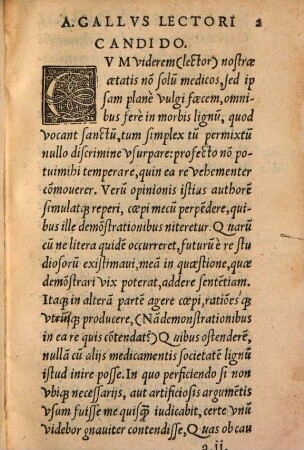 A. GALLVS LECTORI 2
CANDIDO.
CVM viderem (lector) nostræ
ætatis nõ solũ medicos, sed ip
sam planè vulgi fæcem, omni-
bus ferè in morbis lignũ, quod
vocant sanctũ, tum simplex tũ permixtũ
nullo discrimine vsurpare: profecto nõ po-
tui mihi temperare, quin ea re vehementer
cõmouerer. Verũ opinionis istius authorẽ
simulatque reperi, cœpi mecũ perpẽdere, qui-
bus ille demõstrationibus niteretur. Quarũ
cũ ne litera quidẽ occurreret, futurũ è re stu
diosorũ existimaui, meã in quæstione, quæ
demõstrari vix poterat, addere sentẽtiam.
Itaq; in alterã partẽ agere cœpi, ratiões q;
vtrinq; producere, (Nã demonstrationibus
in ea re quis cõtendat?) Quibus ostenderẽ,
nullã cũ alijs medicamentis societatẽ lignũ
istud inire posse. In quo perficiendo si non
vbiq; necessarijs, aut artificiosis argumẽtis
vsum fuisse me quisq; iudicabit, certe vnũ
videbor gnauiter contendisse, Quas ob cau
a.ii.